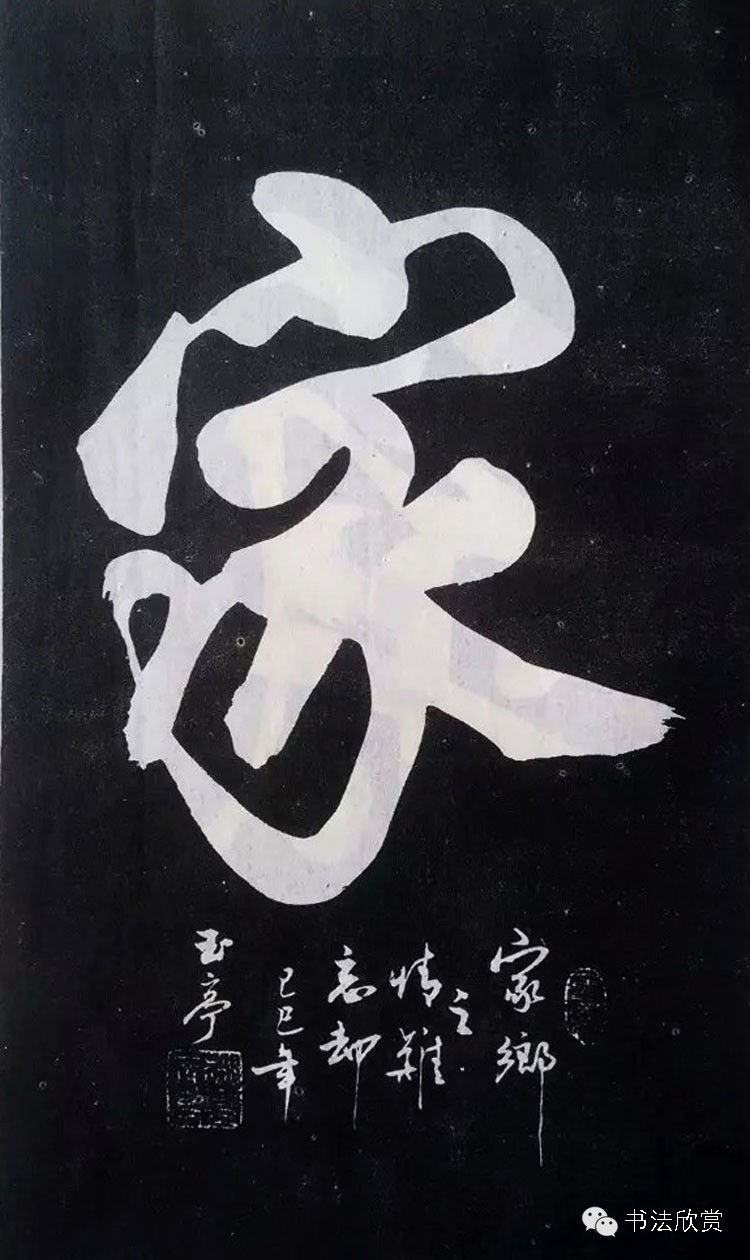 家
家鄉
之
情難
忘却
己巳年
玉亭
书法欣赏